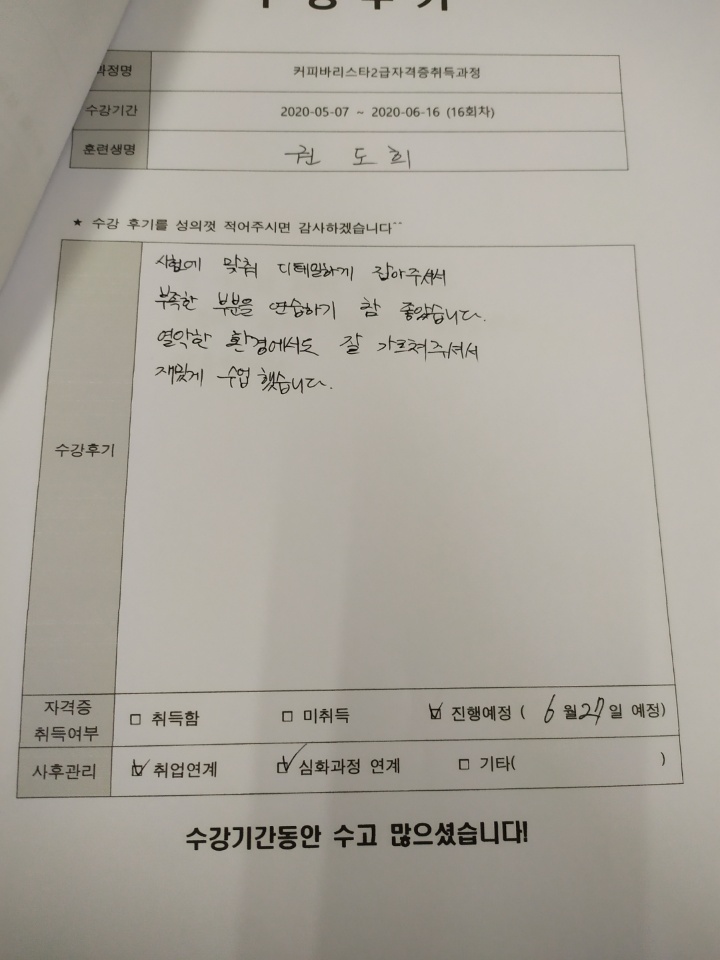 수강후기
과정명 커피바리스타2급자격증취득과정
수강기간 2020-05-07 ~ 2020-06-16 (16회차)
훈련생명 권 도 희
★ 수강 후기를 성의껏 적어주시면 감사하겠습니다^^
수강후기
시험에 맞춰 디테일하게 잡아주셔서
부족한 부분을 연습하기 참 좋았습니다.
열악한 환경에서도 잘 가르쳐주셔서
재밌게 수업 했습니다.
자격증 취득여부 □ 취득함 □ 미취득 ☑ 진행예정 ( 6 월 27 일 예정)
사후관리 ☑ 취업연계 ☑ 심화과정 연계 □ 기타( )
수강기간동안 수고 많으셨습니다!